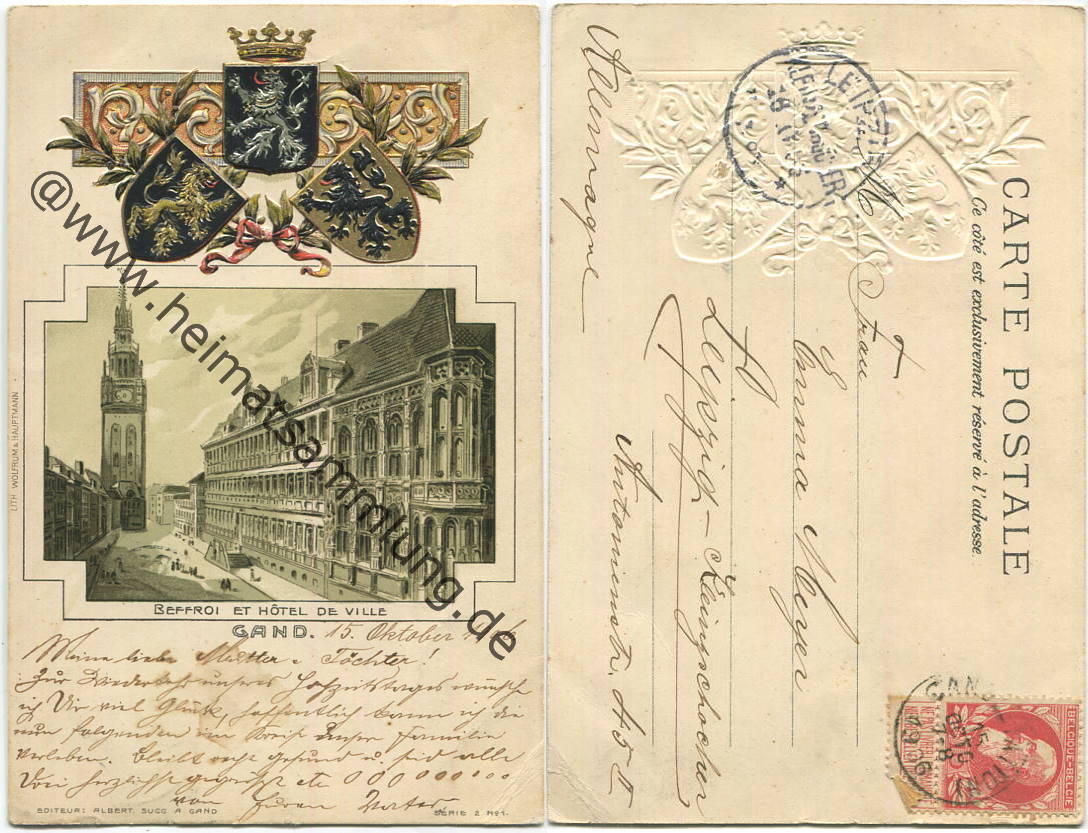 @www.heimatsammlung.de
LITH. WOLFRUM & HAUPTMANN
BEFFROI ET HÔTEL DE VILLE
GAND. 15. Oktober
Meine liebe Mutter u. Töchter!
Zur Wiederkehr unseres Hochzeitstages wünsche
ich Dir viel Glück, hoffentlich kann ich die
nun folgenden im Kreis unser Familie
verleben. Bleibt recht gesund u. seid alle
herzlichst gegrüsst etc 000 000000
von Eurem Vater
EDITEUR: ALBERT SUGG A GAND
SÉRIE 2 No 1.
CARTE POSTALE
Ce côté est exclusivement réservé à l'adresse.
Frau
Emma Meyer
Leipzig-Kleinzschocher
Antonienstr. 45 II
Allemagne
LEIPZIG
BELGIQUE-BELGIE
GAND
15
OCTO
1906